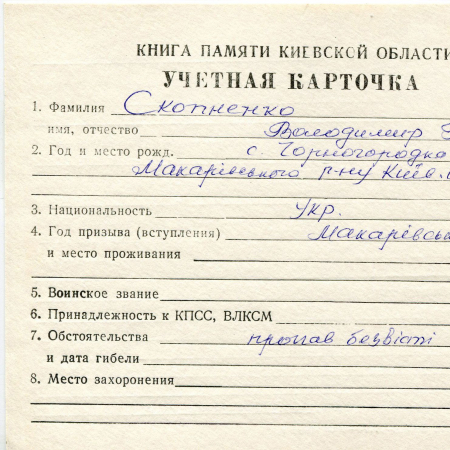 КНИГА ПАМЯТИ КИЕВСКОЙ ОБЛАСТИ
УЧЕТНАЯ КАРТОЧКА
1. Фамилия Скопненко
имя, отчество Володимир
2. Год и место рожд. с. Чорногородка
Макарівського р-ну Київ.
3. Национальность Укр.
4. Год призыва (вступления) Макарівськ
и место проживания
5. Воинское звание
6. Принадлежность к КПСС, ВЛКСМ
7. Обстоятельства пропав безвісті
и дата гибели
8. Место захоронения